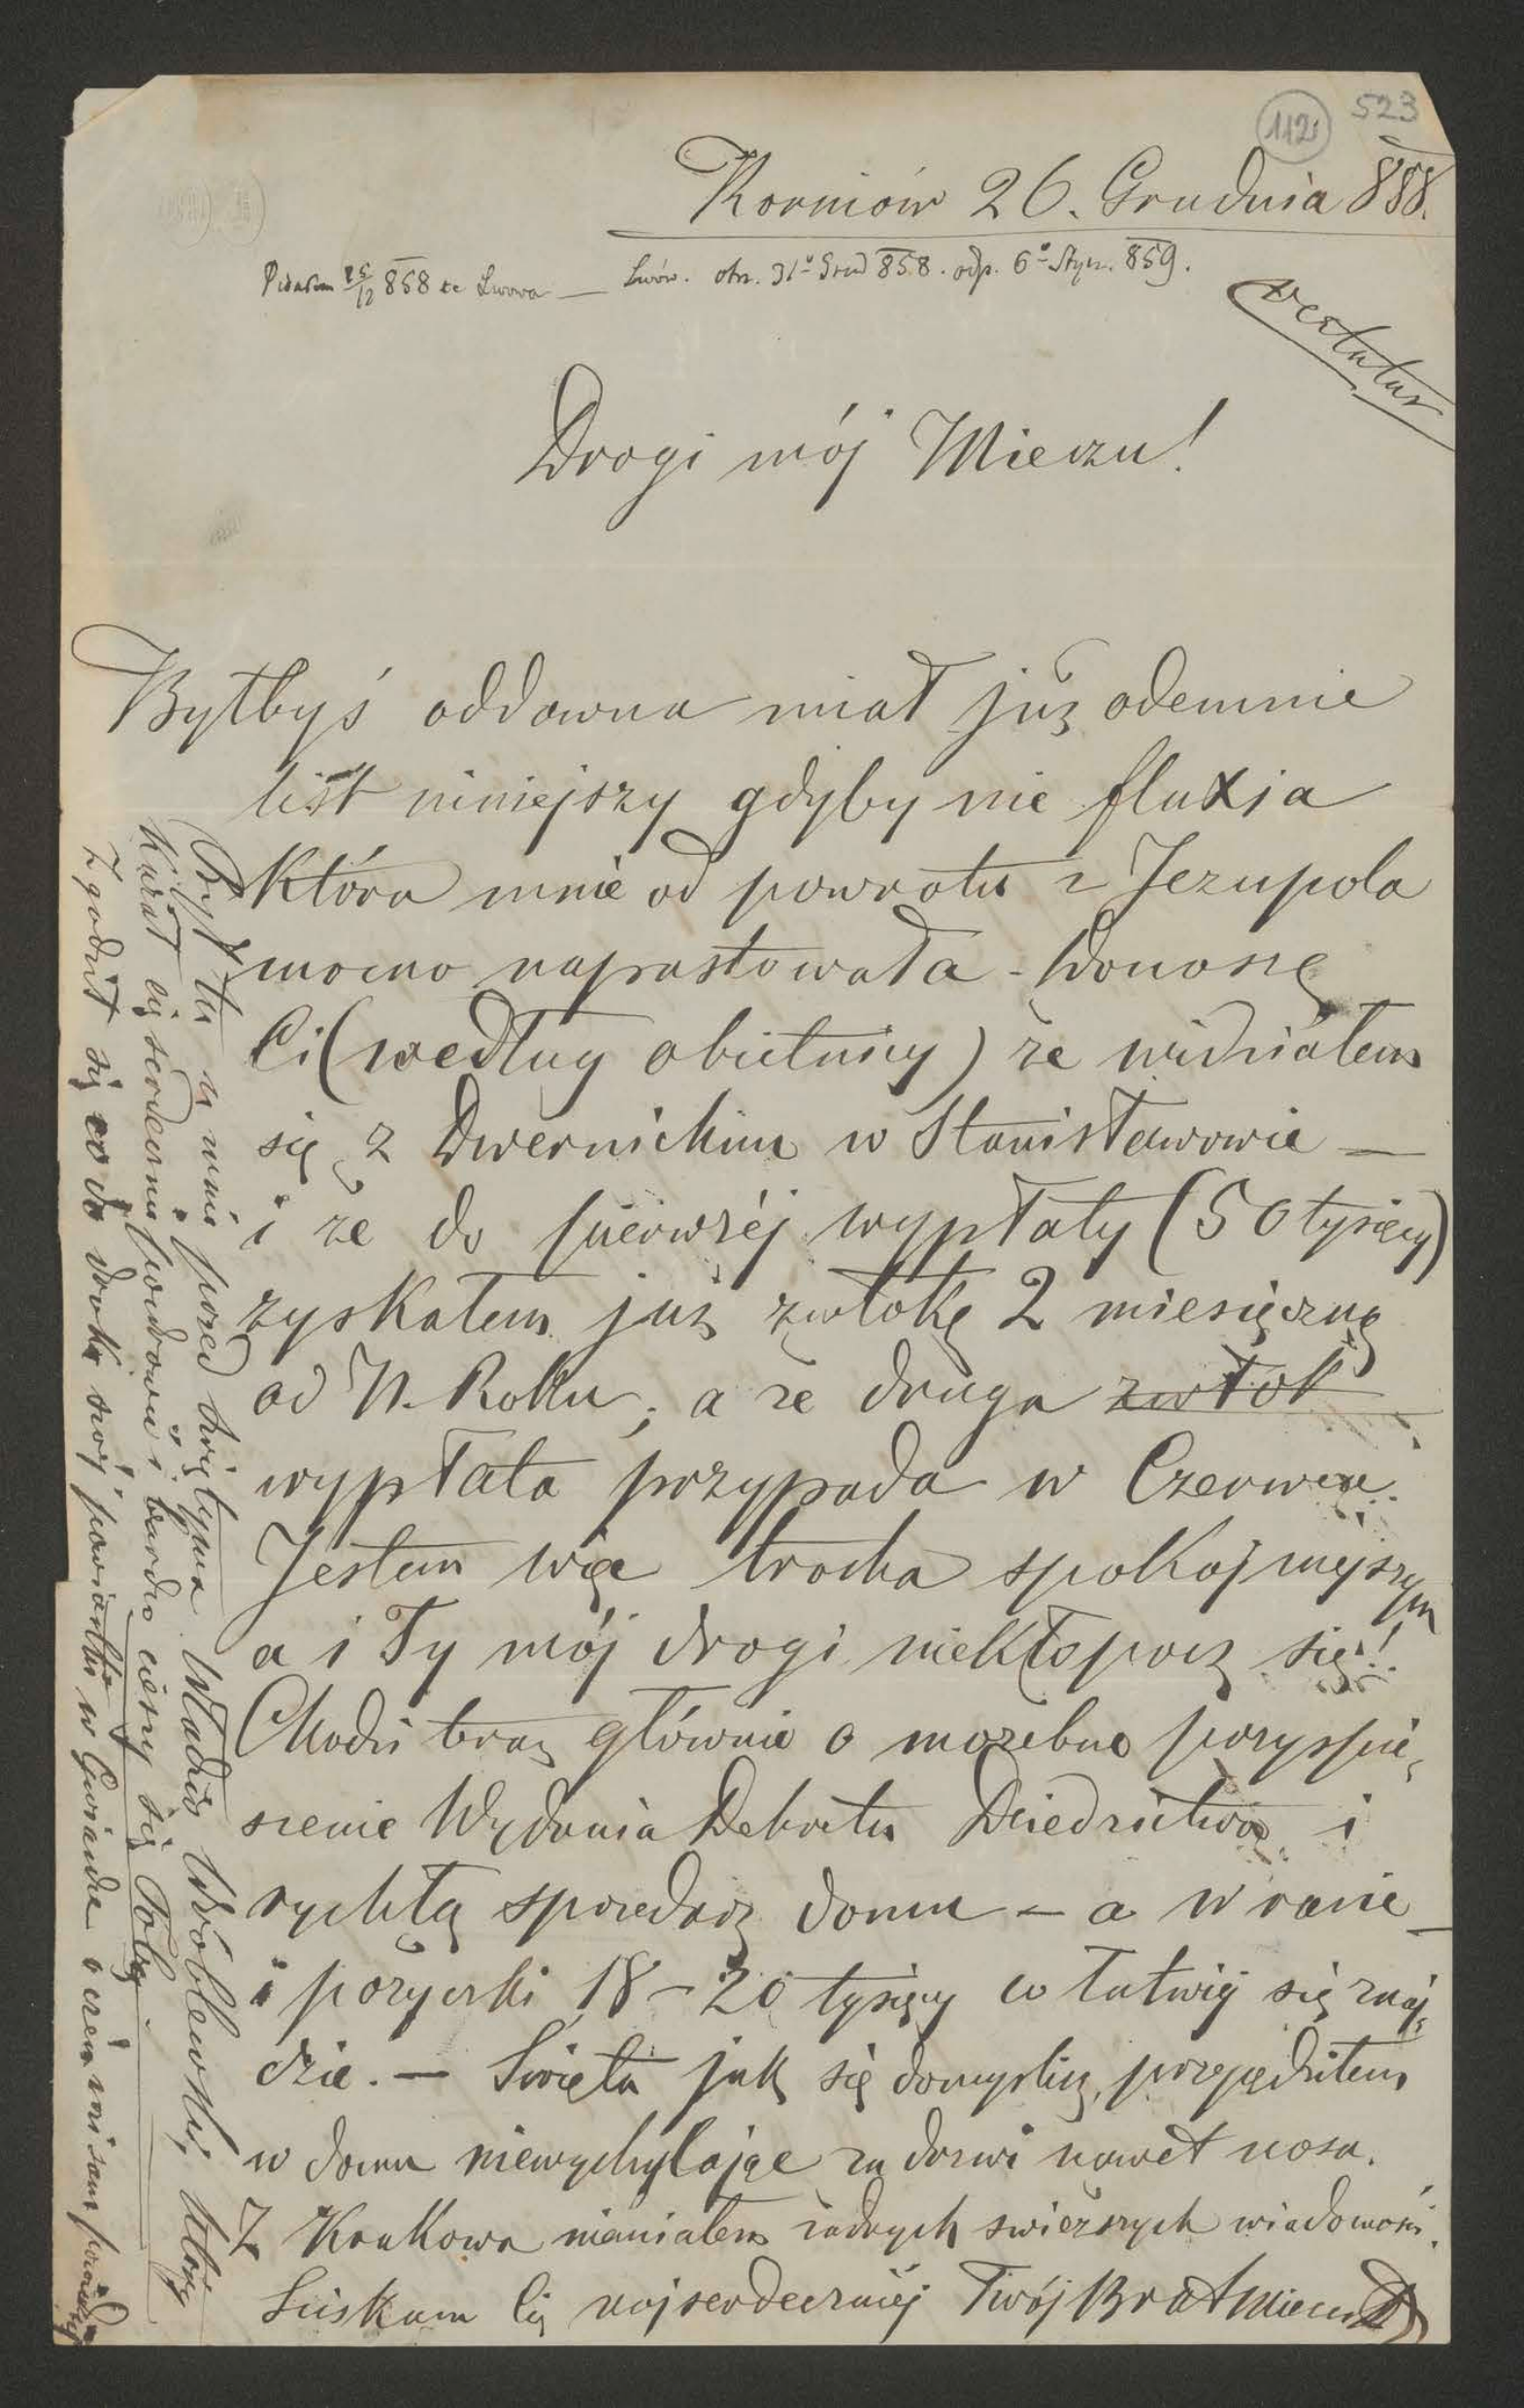 523
112
Korniów 26. Grudnia 858.
Pisałem 25/12 858 ze Lwowa — Lwów. otrz. 31° Grud 858. odp. 6° Stycz. 859.
vertatur
Drogi mój Mieczu!
Byłbyś oddawna miał już odemnie
list niniejszy gdyby nie fluxia
która mnie od powrotu z Jezupola
mocno napastowała - Donoszę
Ci (według obietnicy) że widziałem
się z Dwernickim w Stanisławowie —
i że do pierwszéj wypłaty (50 tysięcy)
zyskałem już zwłokę 2 miesięczną
od N. Roku; a że druga zwłok
wypłata przypada w Czerwcu.
Jestem więc trocha spokojniejszym
a i Ty mój drogi niekłopocz się!
Chodzi teraz głównie o możebne przyspie,
szenie Wydania Dekretu Dziedzictwa i
rychłą sprzedaż domu - a w razie
i pożyczki 18-20 tysięcy co łatwiéj się znaj,
dzie. — Święta jak się domyślisz, przepędziłem
w domu niewychylając za drzwi nawet nosa.
Z Krakowa niemiałem żadnych swieższych wiadomości.
Sciskam Cię najserdeczniéj Twój Brat
Był tu u mnie przed Świętyma Władzio Wróblewski, który
kazał Cię serdecznie pozdrowić i bardzo cieszy się Tobą.
Zgodził się co do swój w o czém mi sam powiedział